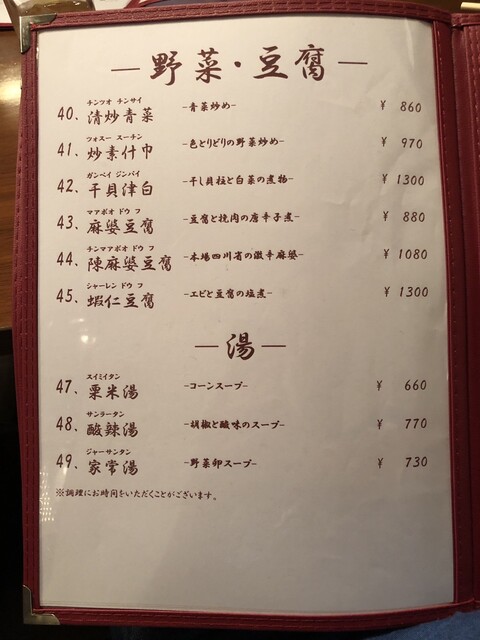 —野菜・豆腐—
チンツオ チンサイ
40. 清炒青菜 -青菜炒め- ¥ 860
フォスー スーチン
41. 炒素什巾 -色とりどりの野菜炒め- ¥ 970
ガンベイ ジンバイ
42. 干貝津白 -干し貝柱と白菜の煮物- ¥ 1300
マアボオ ドウ フ
43. 麻婆豆腐 -豆腐と挽肉の唐辛子煮- ¥ 880
チンマアボオ ドウ フ
44. 陳麻婆豆腐 -本場四川省の激辛麻婆- ¥ 1080
シャーレン ドウ フ
45. 蝦仁豆腐 -エビと豆腐の塩煮- ¥ 1300
—湯—
スイミイタン
47. 粟米湯 -コーンスープ- ¥ 660
サンラータン
48. 酸辣湯 -胡椒と酸味のスープ- ¥ 770
ジャーサンタン
49. 家常湯 -野菜卵スープ- ¥ 730
※調理にお時間をいただくことがございます。